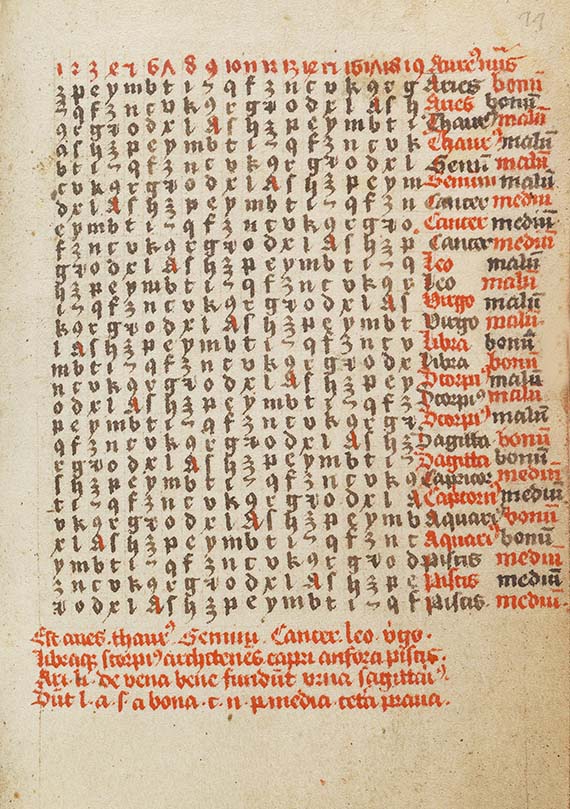 1 2 3 4 5 6 7 8 9 10 11 12 13 14 15 16 17 18 19 Aureꝰ nūs
ʒ p e y m b t i ~ q f z n c v k 9 r g Aries bonū
~ q f z n c v k 9 r g ꝛ o d x l a s h Aries bonū
9 r g ꝛ o d x l A s h ʒ p e y m b t i Thaurꝰ malū
a s h ʒ p e y m b t i ~ q f z n c v k Thaurꝰ malū
b t i ~ q f z n c v k 9 r g ꝛ o d x l Gemiī malū
c v k 9 r g ꝛ o d x l A s h ʒ p e y m Gemini malū
d x l A s h ʒ p e y m b t i ~ q f z n Cancer mediū
e y m b t i ~ q f z n c v k 9 r g ꝛ o Cancer mediū
f z n c v k 9 r g ꝛ o d x l A s h ʒ p Cancer mediū
g ꝛ o d x l A s h ʒ p e y m b t i ~ q Leo malū
h ʒ p e y m b t i ~ q f z n c v k 9 r Leo malū
i ~ q f z n c v k 9 r g ꝛ o d x l A s Virgo malū
k 9 r g ꝛ o d x l A s h ʒ p e y m b t Virgo malū
l A s h ʒ p e y m b t i ~ q f z n c v Libra bonū
m b t i ~ q f z n c v k 9 r g ꝛ o d x Libra bonū
n c v k 9 r g ꝛ o d x l A s h ʒ p e y Scorpiꝰ malū
o d x l A s h ʒ p e y m b t i ~ q f z Scorpiꝰ malū
p e y m b t i ~ q f z n c v k 9 r g ꝛ Scorpiꝰ malū
q f z n c v k 9 r g ꝛ o d x l A s h ʒ Sagitta bonū
r g ꝛ o d x l A s h ʒ p e y m b t i ~ Sagitta bonū
s h ʒ p e y m b t i ~ q f z n c v k 9 Capricor mediū
t i ~ q f z n c v k 9 r g ꝛ o d x l A Capicorn mediū
v k 9 r g ꝛ o d x l A s h ʒ p e y m b Aquariꝰ bonū
x l A s h ʒ p e y m b t i ~ q f z n c Aquariꝰ bonū
y m b t i ~ q f z n c v k 9 r g ꝛ o d Piscis mediū
z n c v k 9 r g ꝛ o d x l A s h ʒ p e Piscis mediū
ꝛ o d x l A s h ʒ p e y m b t i ~ q f Piscis mediū
Est aries thaurꝰ Gemini Cancer leo v̄go
libraqꝫ scorpiꝰ architenēs capri anfora piscis
Ari li de vena bene fundūt vrna sagittaiꝰ
Dūt l a s a bona c n p media cetā praua